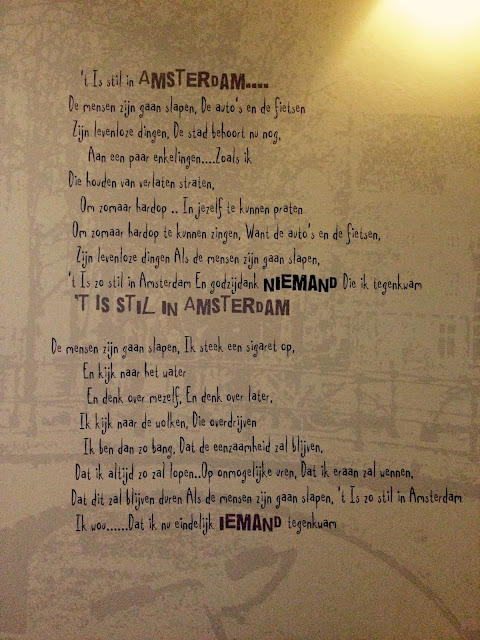 't Is stil in AMSTERDAM....
De mensen zijn gaan slapen, De auto's en de fietsen
Zijn levenloze dingen, De stad behoort nu nog,
Aan een paar enkelingen....Zoals ik
Die houden van verlaten straten,
Om zomaar hardop .. In jezelf te kunnen praten
Om zomaar hardop te kunnen zingen, Want de auto's en de fietsen,
Zijn levenloze dingen Als de mensen zijn gaan slapen,
't Is zo stil in Amsterdam En godzijdank NIEMAND Die ik tegenkwam
'T IS STIL IN AMSTERDAM
De mensen zijn gaan slapen, Ik steek een sigaret op,
En kijk naar het water
En denk over mezelf, En denk over later,
Ik kijk naar de wolken, Die overdrijven
Ik ben dan zo bang, Dat de eenzaamheid zal blijven,
Dat ik altijd zo zal lopen..Op onmogelijke uren, Dat ik eraan zal wennen,
Dat dit zal blijven duren Als de mensen zijn gaan slapen, 't Is zo stil in Amsterdam
Ik wou......Dat ik nu eindelijk IEMAND tegenkwam